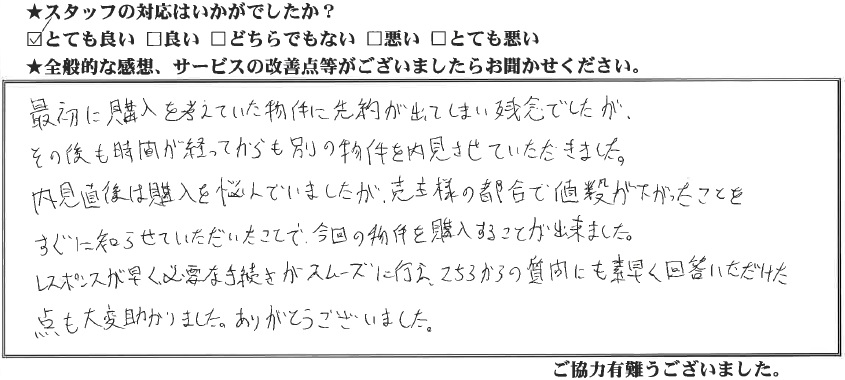 ★スタッフの対応はいかがでしたか？
☑とても良い □良い □どちらでもない □悪い □とても悪い
★全般的な感想、サービスの改善点等がございましたらお聞かせください。
最初に購入を考えていた物件に先約が出てしまい残念でしたが、
その後も時間が経ってからも別の物件を内見させていただきました。
内見直後は購入を悩んでいましたが、売主様の都合で値段が下がったことを
すぐに知らせていただいたことで、今回の物件を購入することが出来ました。
レスポンスが早く、必要な手続きがスムーズに行え、こちらからの質問にも素早く回答いただけた
点も大変助かりました。ありがとうございました。
ご協力有難うございました。